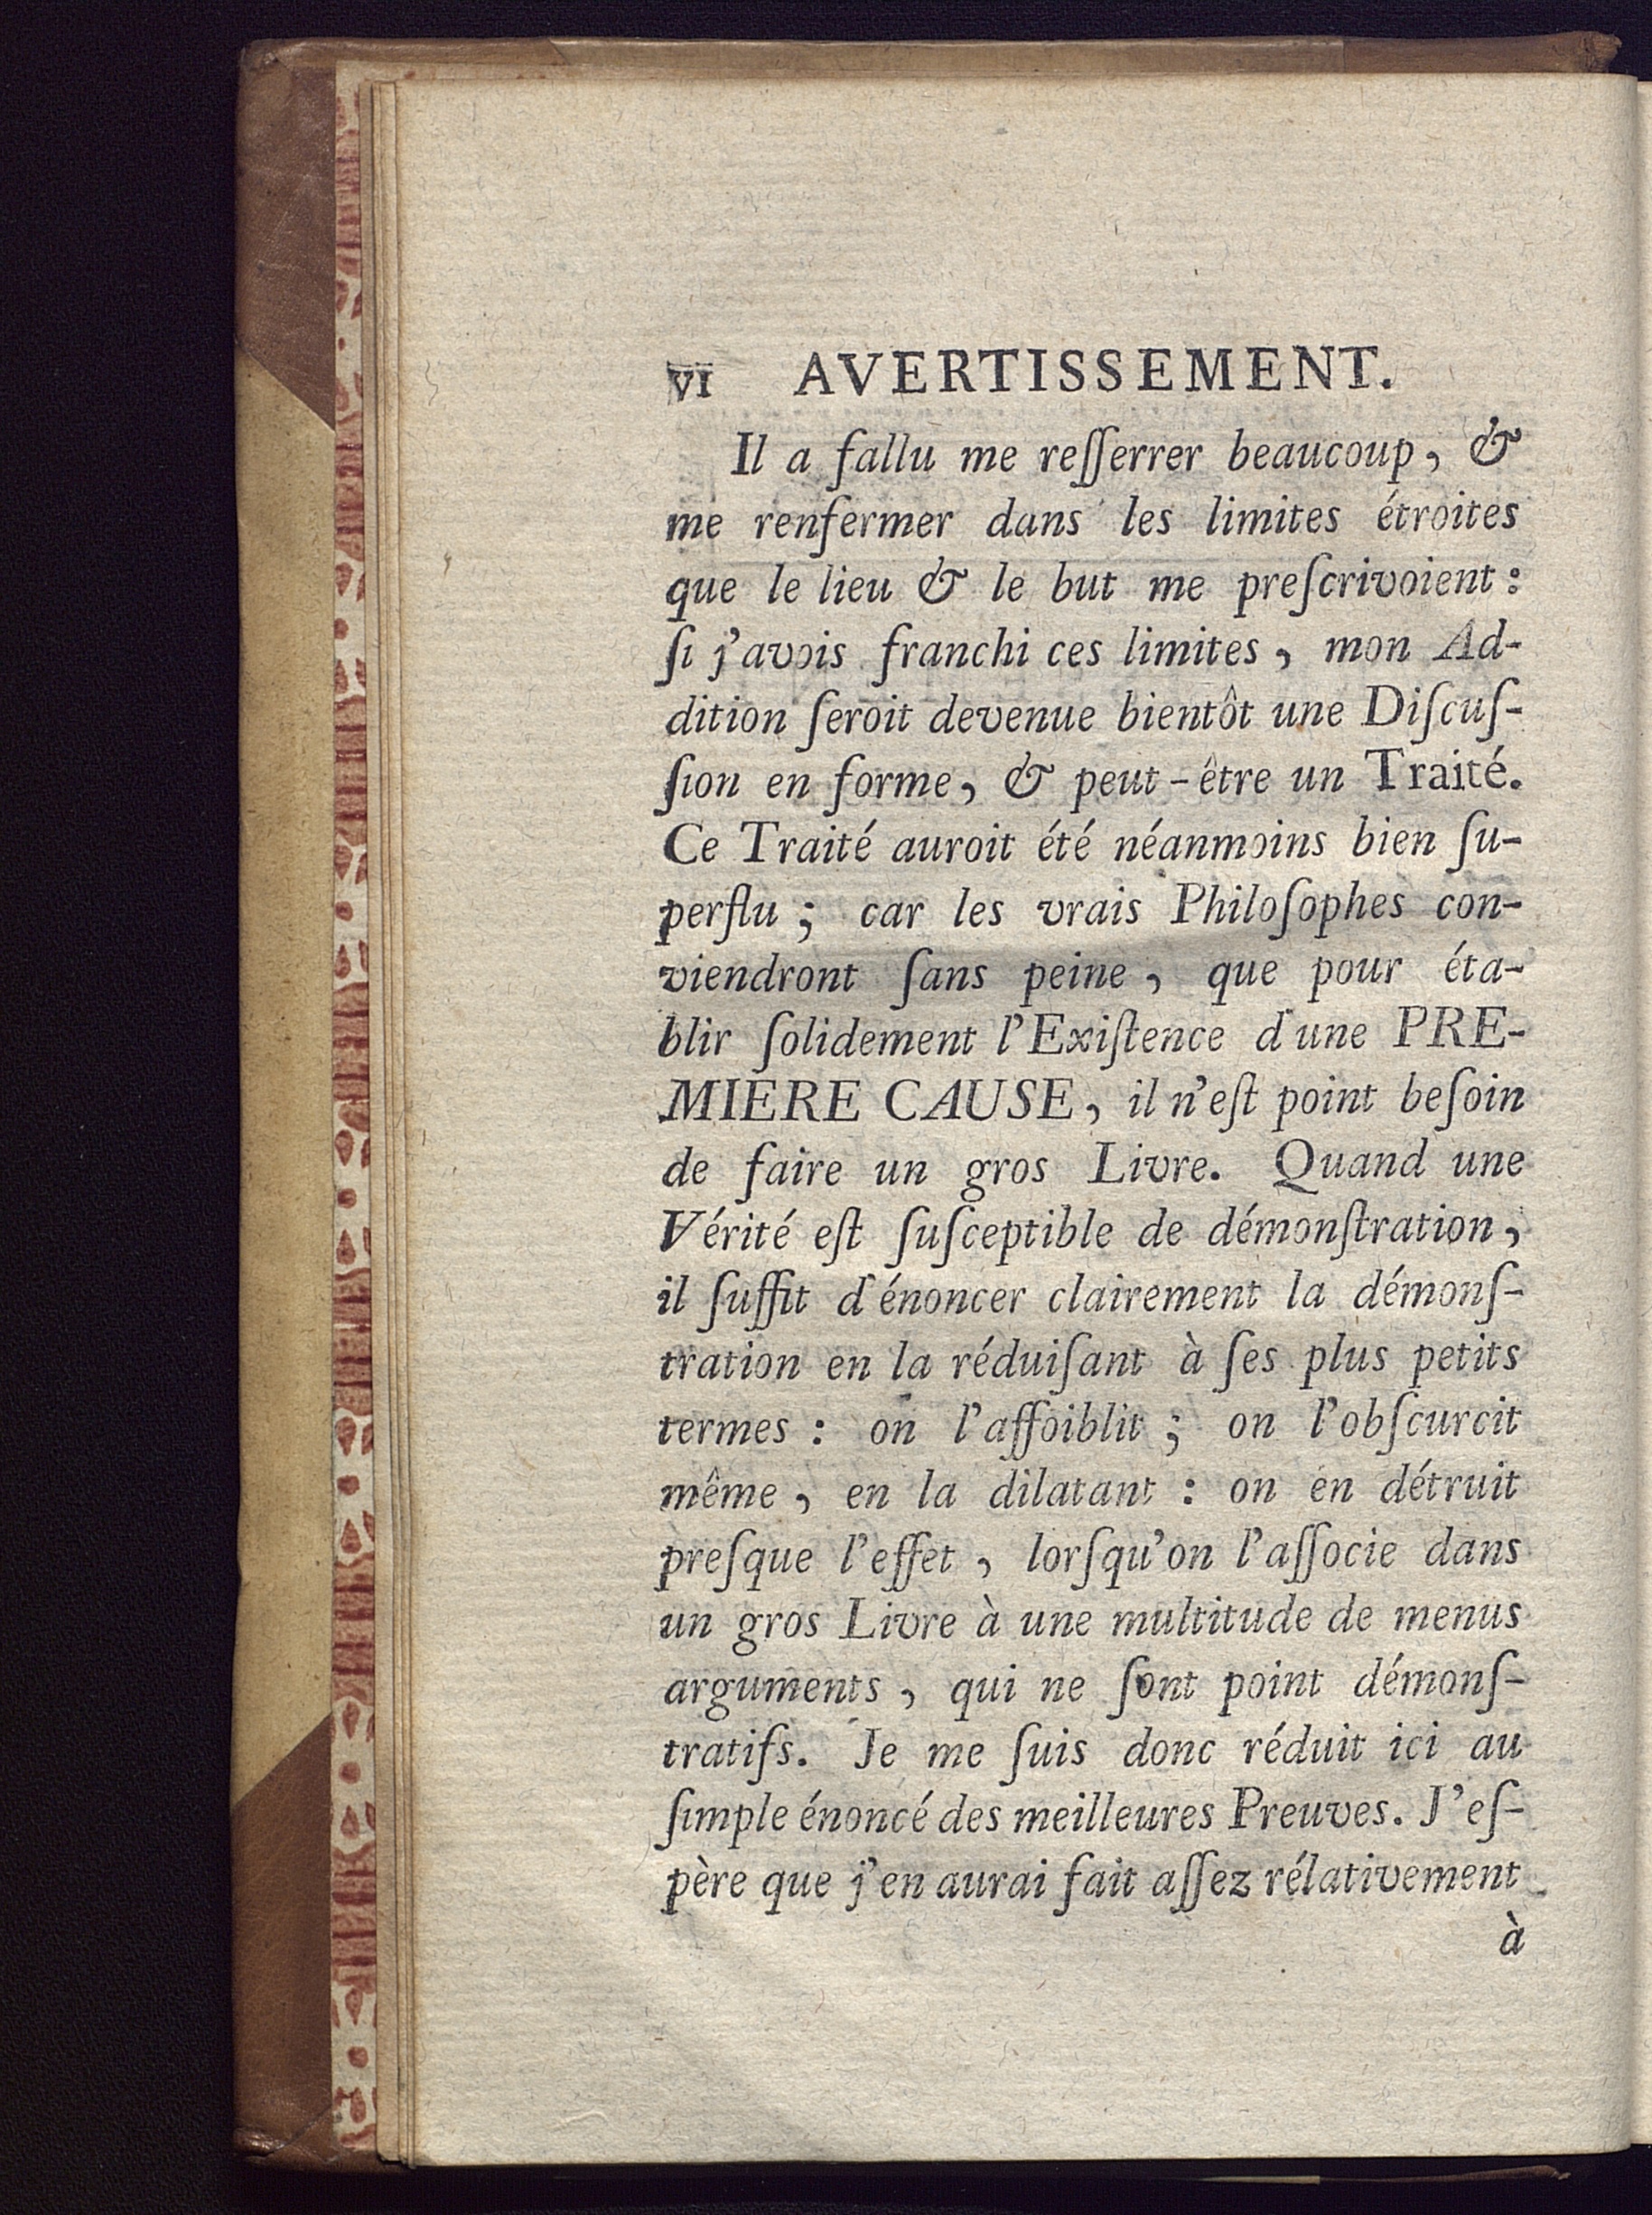 VI AVERTISSEMENT.
Il a fallu me reſſerrer beaucoup, &
me renfermer dans les limites étroites
que le lieu & le but me preſcrivoient:
ſi j'avois franchi ces limites, mon Ad-
dition ſeroit devenue bientôt une Diſcuſ-
ſion en forme, & peut-être un Traité.
Ce Traité auroit été néanmoins bien ſu-
perflu; car les vrais Philoſophes con-
viendront ſans peine, que pour éta-
blir ſolidement l'Exiſtence d'une PRE-
MIERE CAUSE, il n'eſt point beſoin
de faire un gros Livre. Quand une
Vérité eſt ſuſceptible de démonſtration,
il ſuffit d'énoncer clairement la démonſ-
tration en la réduiſant à ſes plus petits
termes: on l'affoiblit; on l'obſcurcit
même, en la dilatant: on en détruit
preſque l'effet, lorſqu'on l'aſſocie dans
un gros Livre à une multitude de menus
arguments, qui ne ſont point démonſ-
tratifs. Je me ſuis donc réduit ici au
ſimple énoncé des meilleures Preuves. J'eſ-
père que j'en aurai fait aſſez rélativement
à